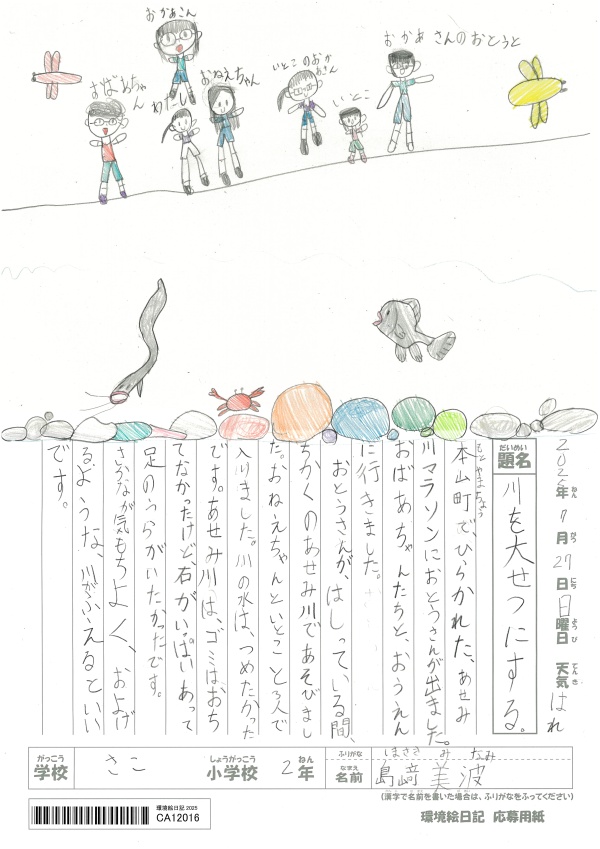 おかあさん
おかあさんのおとうと
おばあちゃん
わたし
おねえちゃん
いとこのおかあさん
いとこ
2025年7月27日日曜日 天気はれ
ねん がつ にち ようび てんき
だいめい
題名 川を大せつにする。
もとやまちょう
本山町で、ひらかれた、あせみ
川マラソンにおとうさんが出ました。
おばあちゃんたちと、おうえん
に行きました。
おとうさんが、はしっている間、
ちかくのあせみ川であそびまし
た。おねえちゃんといとこと3人で
入りました。川の水は、つめたかった
です。あせみ川は、ゴミはおち
てなかったけど、石がいっぱいあって
足のうらがいたかったです。
さかなが気もちよく、およげ
るような、川がふえるといい
です。
がっこう しょうがっこう ねん ふりがな しまさき みなみ
学校 さこ 小学校 2年 なまえ 名前 島﨑 美波
(漢字で名前を書いた場合は、ふりがなをふってください)
環境絵日記 2025
CA12016
環境絵日記 応募用紙